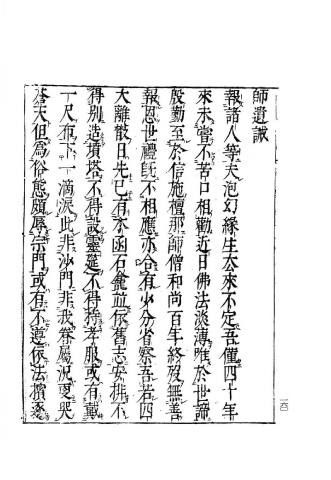 師遺誡
報諸人等夫泡幻緣生去來不定吾僅四十年
來未嘗不苦口相勸近日佛法淡薄唯於世諦
殷勤至於信施檀那師僧和尚百年終歿無善
報恩世禮旣不相應亦合有少分省察吾若四
大離散日先已有木函石龕並依舊志安排不
得別造墳塔不得設靈筵不得持孝服或有戴
一尺布下一滴淚此非沙門非我眷屬況更哭
蒼天但爲俗態頗辱宗門或有不遵依法擯逐